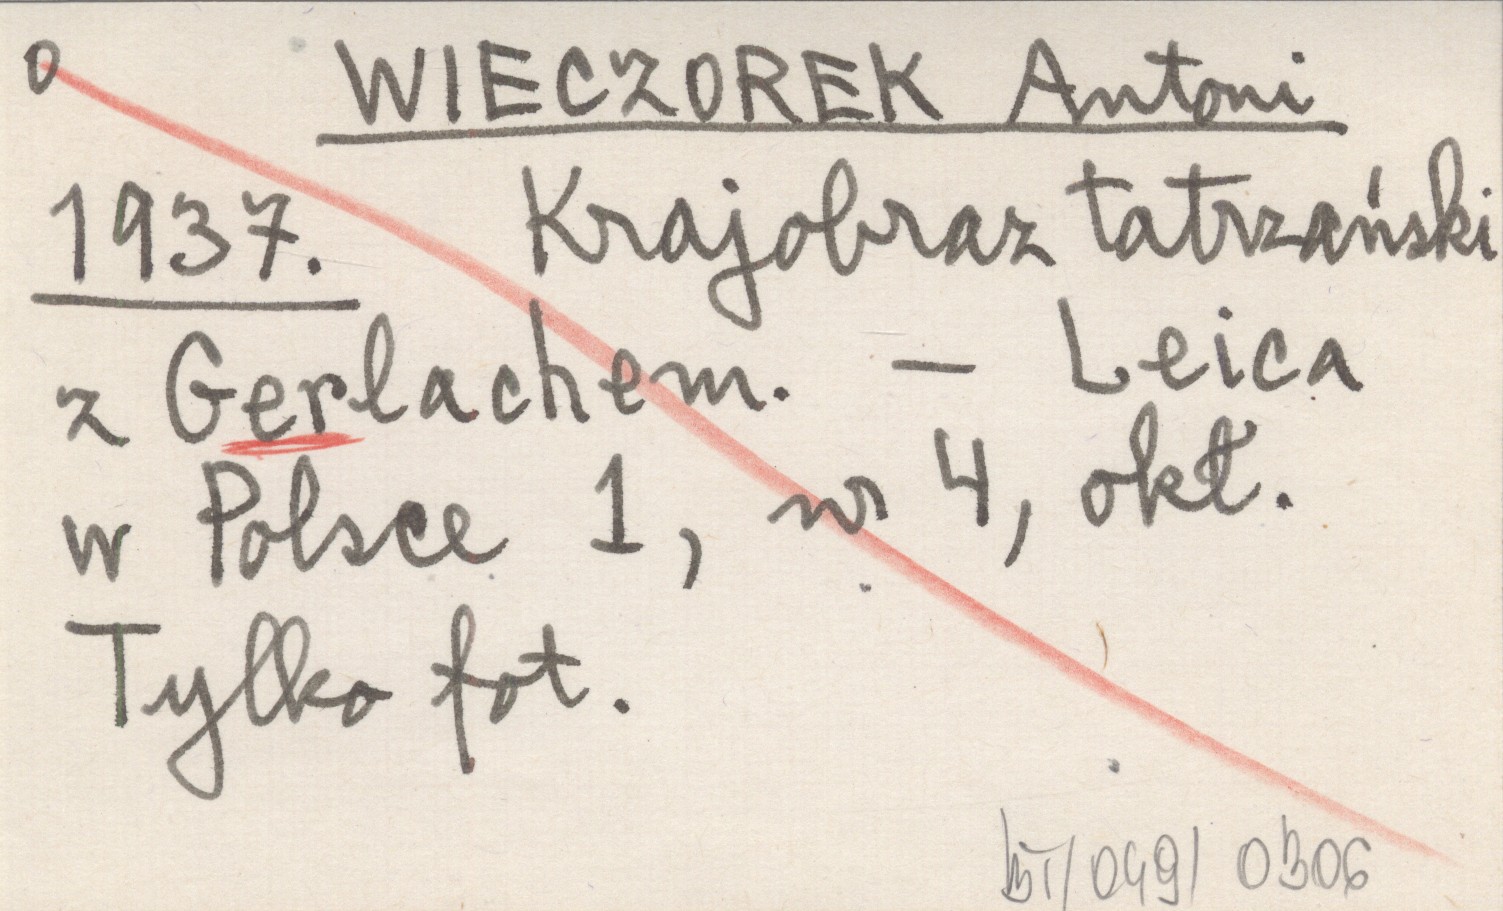 0 WIECZOREK Antoni
1937. Krajobraz tatrzański
z Gerlachem. — Leica
w Polsce 1, nr 4, okł.
Tylko fot.
BT/049/ 0306